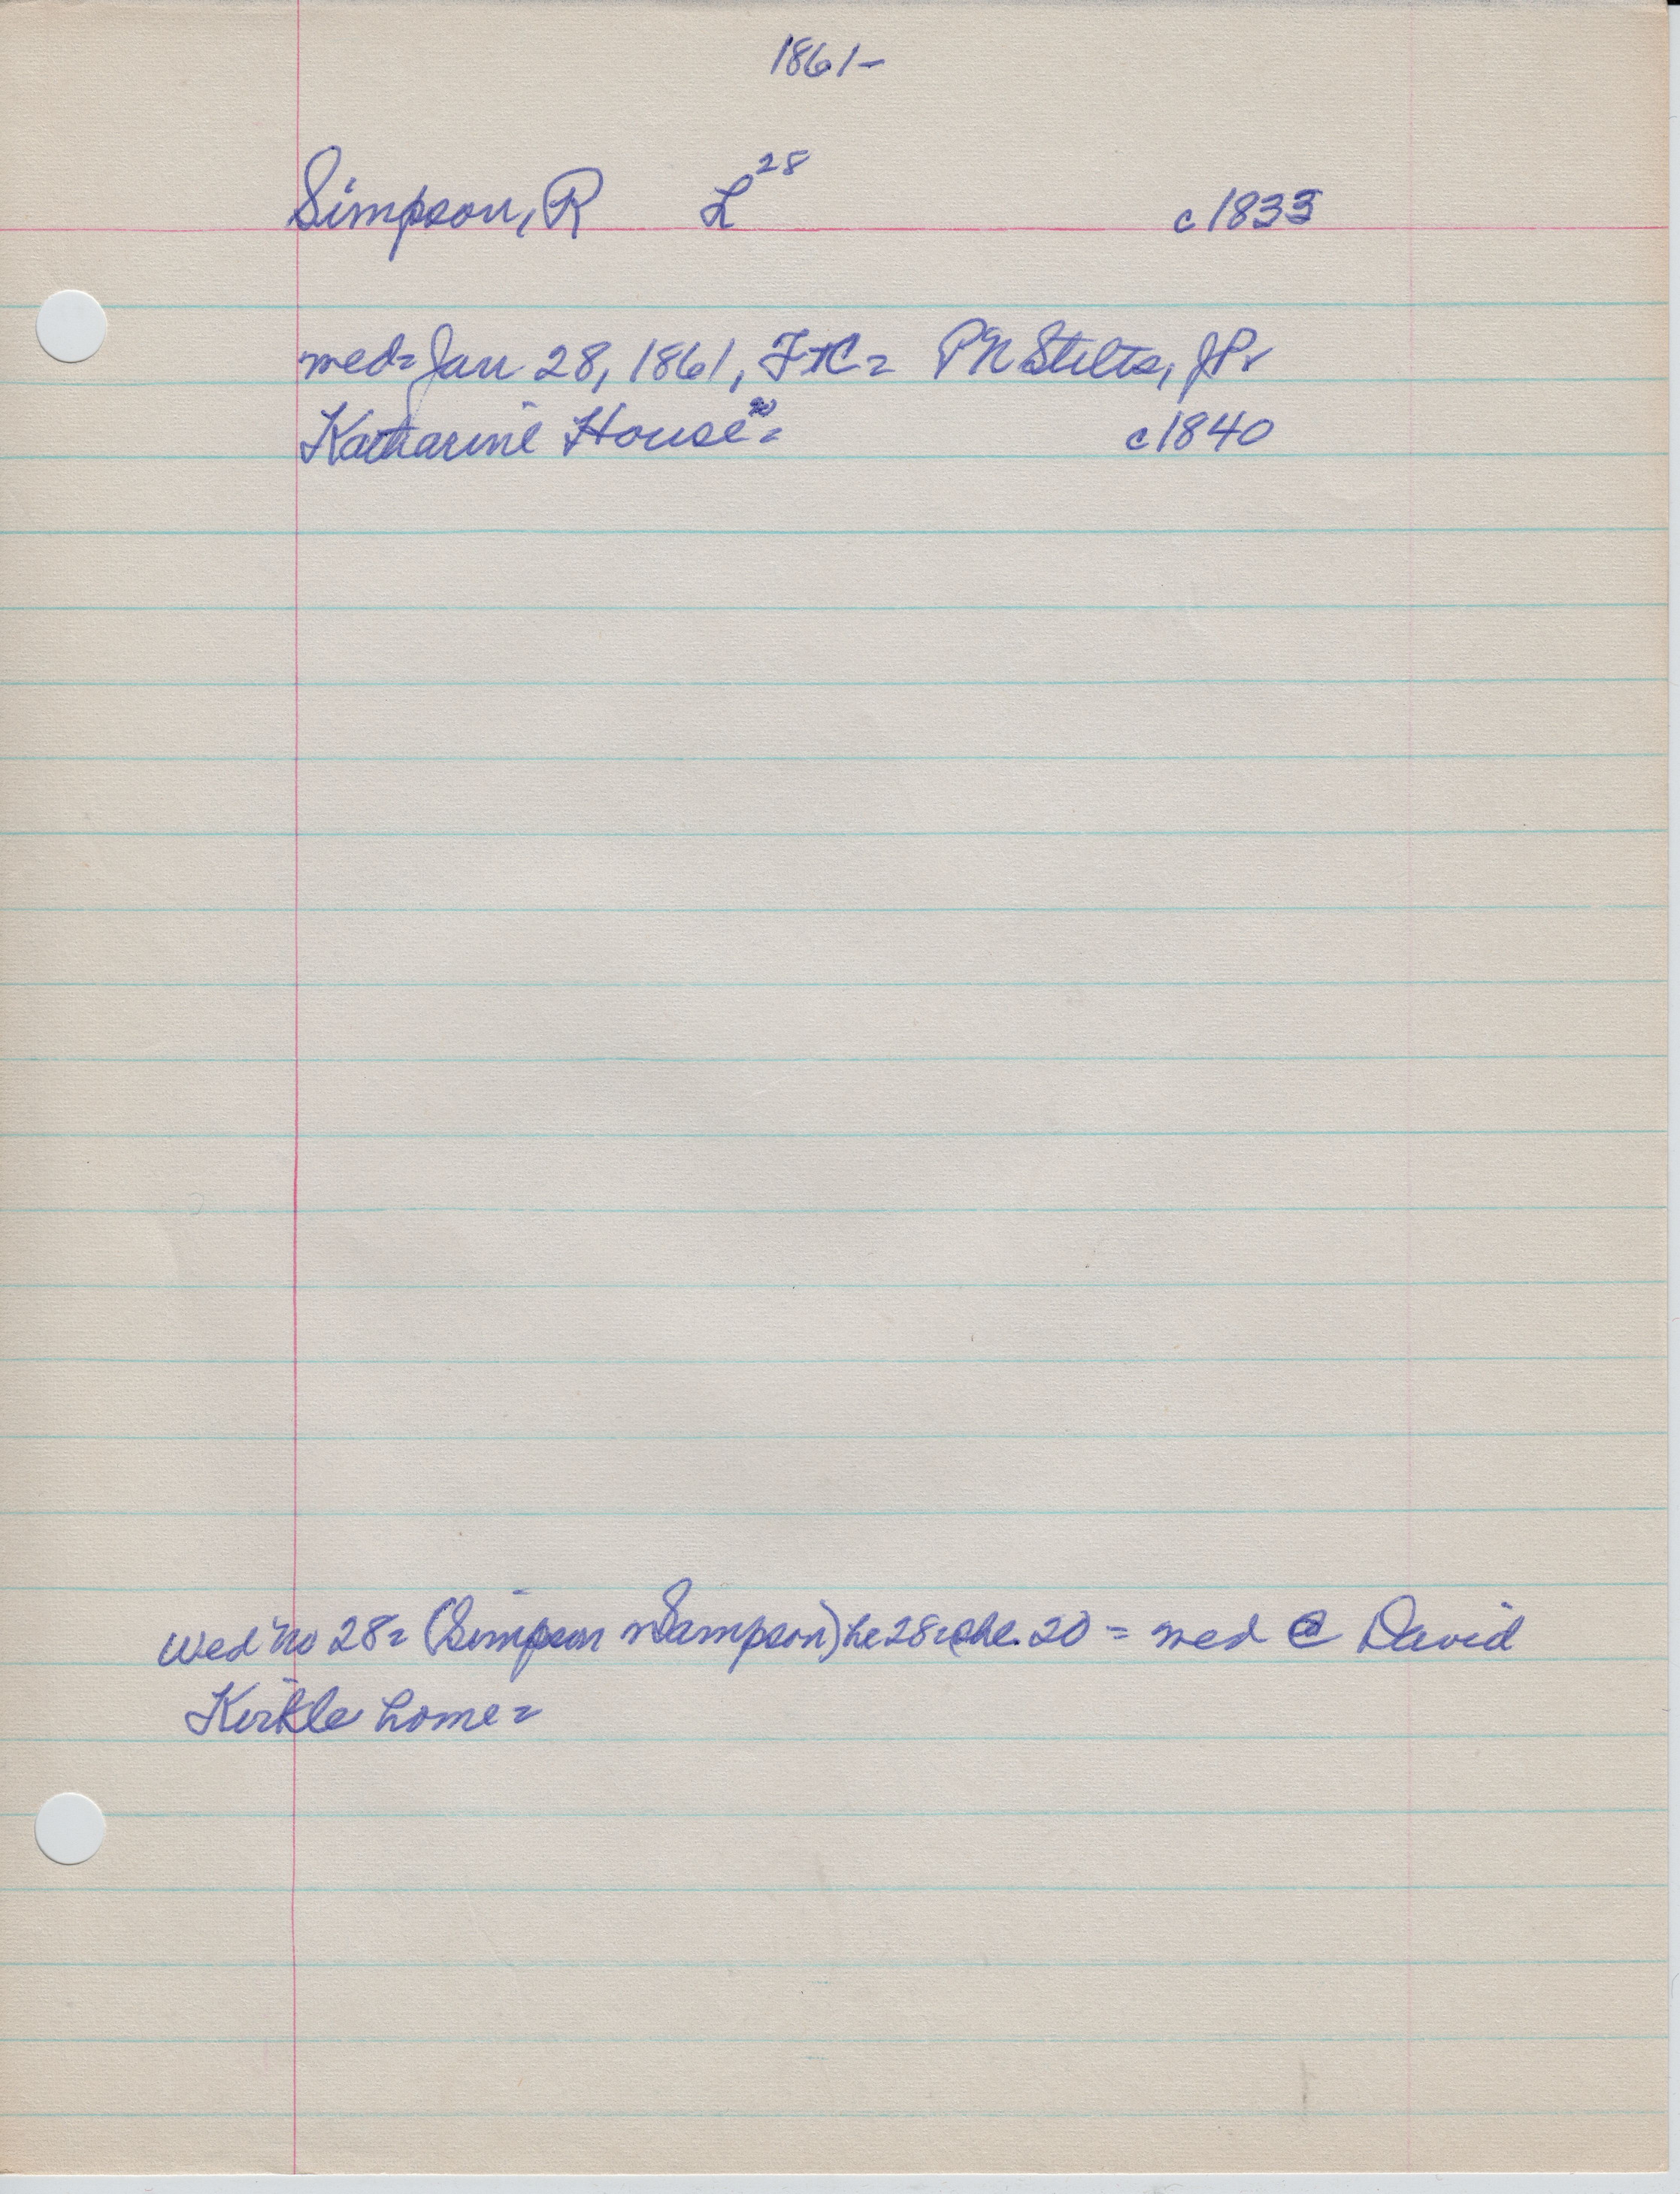 1861-
Simpson, R L 28 c1833
wed= Jan 28, 1861, F+C= PN Stilts, JP=
Katharine House 20 = c1840
Wed no 28= (Simpson or Sampson) he 28= she 20 = wed @ David
Kirkle home=